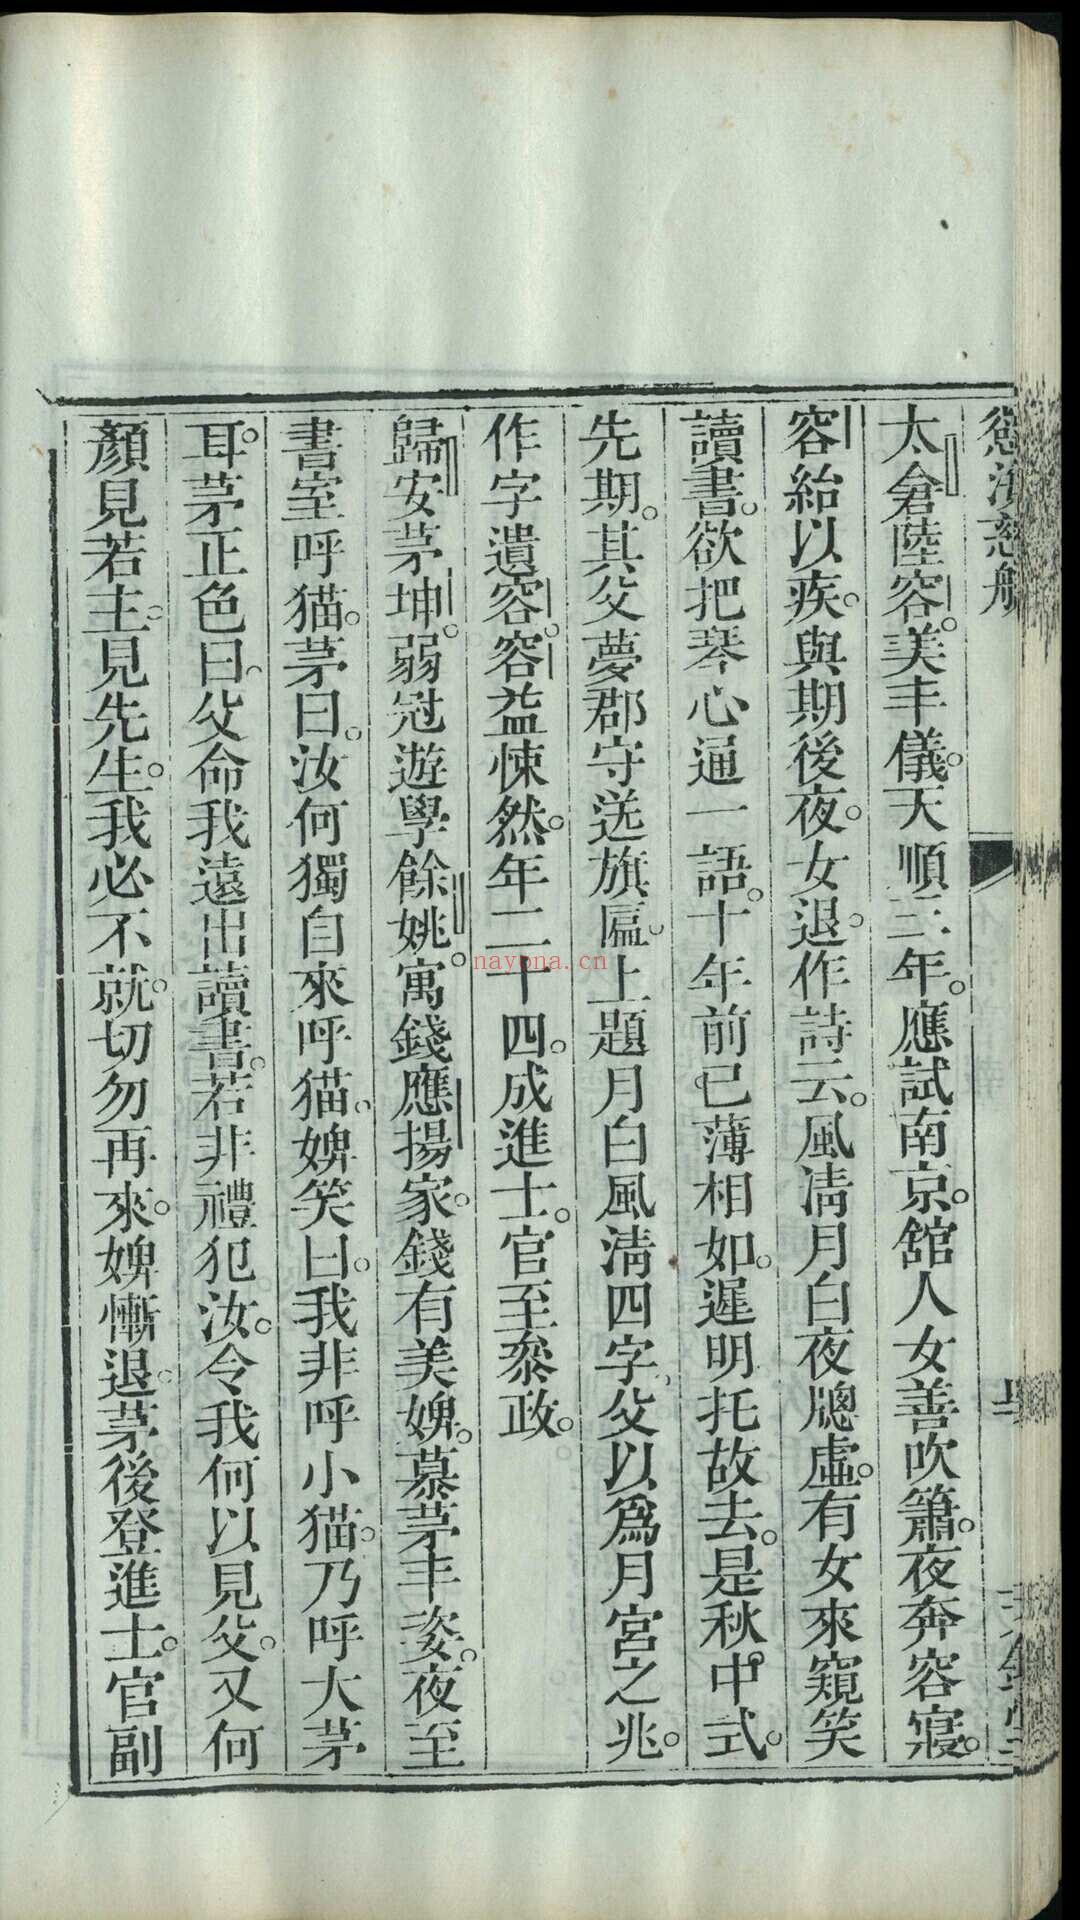 慾海慈航
太倉陸容。美丰儀。天順三年。應試南京。舘人女善吹簫。夜奔容寢。
容紿以疾。與期後夜。女退。作詩云。風淸月白夜牕虛。有女來窺笑
讀書。欲把琴心通一語。十年前已薄相如。遲明托故去。是秋。中式。
先期。其父夢郡守送旗匾。上題月白風淸四字。父以爲月宮之兆。
作字遺容。容益悚然。年二十四。成進士。官至叅政。
歸安茅坤。弱冠遊學餘姚。寓錢應揚家。錢有美婢。慕茅丰姿。夜至
書室呼猫。茅曰。汝何獨自來呼猫。婢笑曰。我非呼小猫。乃呼大茅
耳。茅正色曰。父命我遠出讀書。若非禮犯汝。令我何以見父。又何
顏見若主。見先生。我必不就。切勿再來。婢慚退。茅後登進士。官副
nayona.cn